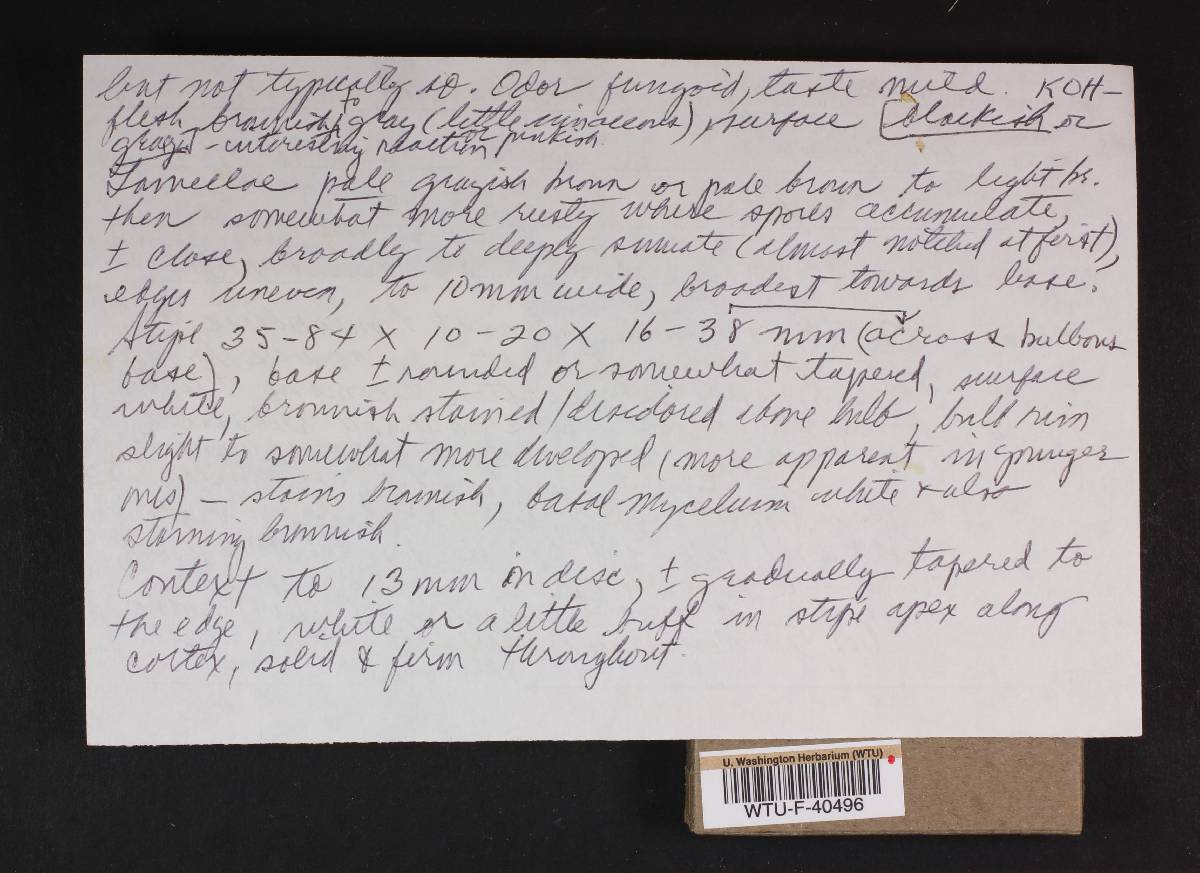 but not typically so. Odor fungoid, taste mild. KOH-
flesh brownish to gray (little vinaceous), surface [blackish or
gray] - interesting reaction or pinkish
Lamellae pale grayish brown or pale brown to light br.
then somewhat more rusty where spores accumulate,
± close, broadly to deeply sinuate (almost notched at first),
edges uneven, to 10 mm wide, broadest towards base.
Stipe 35-84 X 10-20 X 16-38 mm (across bulbous
base), base ± rounded or somewhat tapered, surface
white, brownish stained/discolored above bulb, bulb rim
slight to somewhat more developed (more apparent in younger
ones) - stains brownish, basal mycelium white & also
staining brownish.
Context to 13 mm in disc, ± gradually tapered to
the edge, white or a little buff in stipe apex along
cortex, solid & firm throughout.
U. Washington Herbarium (WTU)
WTU-F-40496